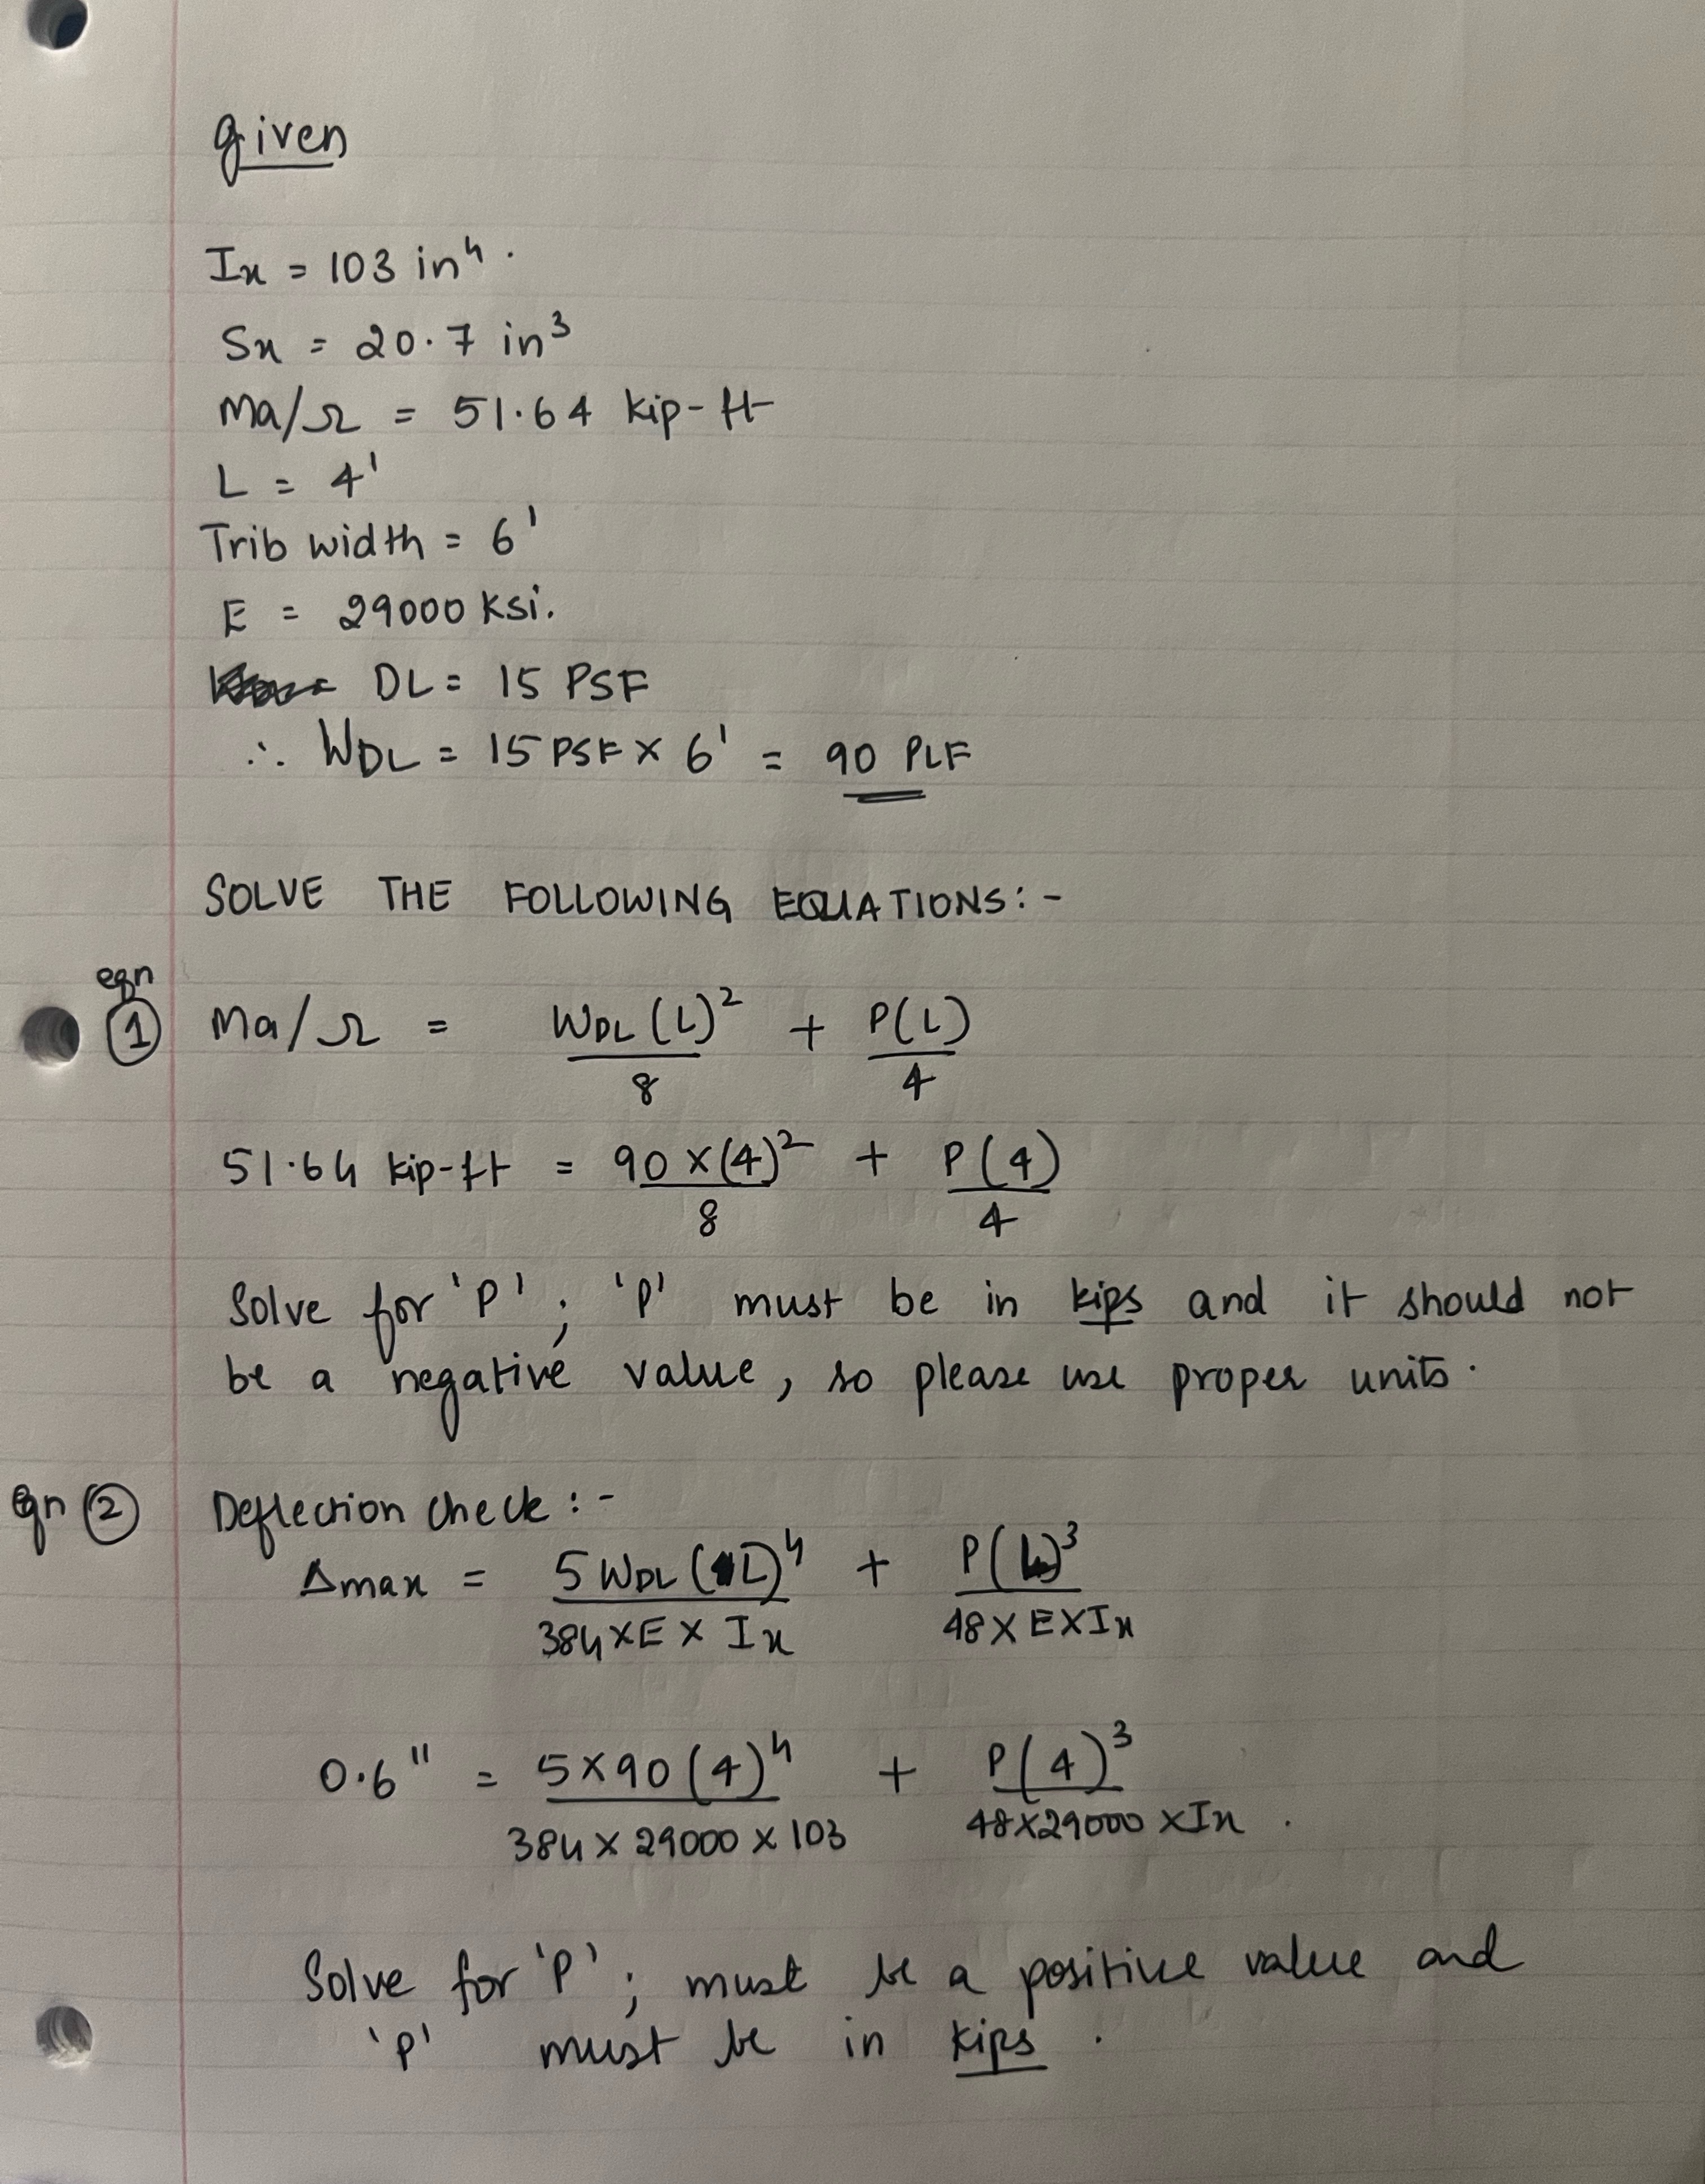 given
Ix = 103 in⁴.
Sx = 20.7 in³
Ma/Ω = 51.64 kip-ft
L = 4'
Trib width = 6'
E = 29000 ksi.
DL = 15 PSF
∴ WDL = 15 PSF × 6' = 90 PLF
SOLVE THE FOLLOWING EQUATIONS:-
eqn ① Ma/Ω = WDL (L)²/8 + P(L)/4
51.64 kip-ft = 90 × (4)²/8 + P(4)/4
Solve for 'P'; 'P' must be in kips and it should not
be a negative value, so please use proper units.
Eqn ② Deflection check :-
Δmax = 5 WDL (L)⁴/384 × E × Ix + P(L)³/48 × E × Ix
0.6" = 5×90 (4)⁴/384 × 29000 × 103 + P(4)³/48×29000 × Ix .
Solve for 'P'; must be a positive value and
'P' must be in kips .